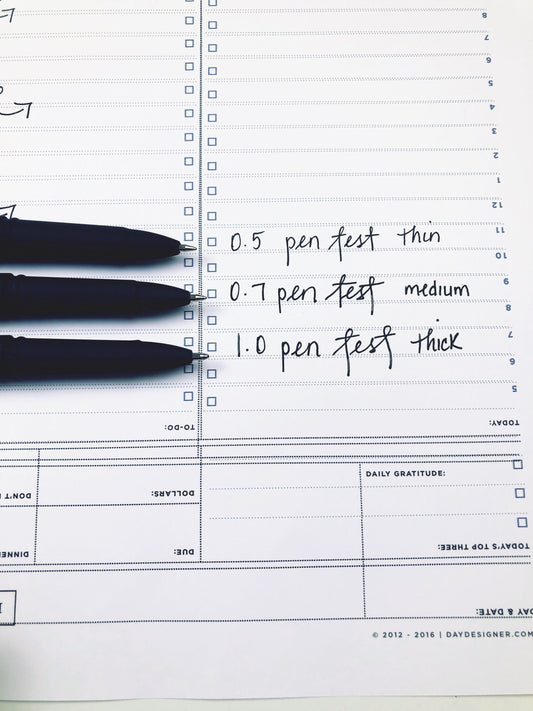 8
7
6
5
4
3
2
1
12
11
0.5 pen test thin
10
9
0.7 pen test medium
8
7
1.0 pen test thick
6
5
TODAY:
TO-DO:
DAILY GRATITUDE:
DOLLARS:
DON'T
TODAY'S TOP THREE:
DUE:
DINNER
DAY & DATE:
© 2012 - 2016 | DAYDESIGNER.COM